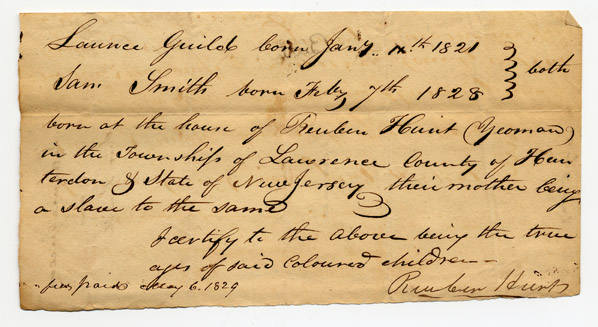 Launce Guild born Jany. 11th 1821
Sam Smith born Feby 7th 1828 } both
born at the house of Reuben Hunt (Yeoman)
in the Township of Lawrence County of Hun
terdon & State of New Jersey their mother being
a slave to the same
I certify to the above being the true
ages of said Coloured children —
fees paid May 6. 1829 Reuben Hunt